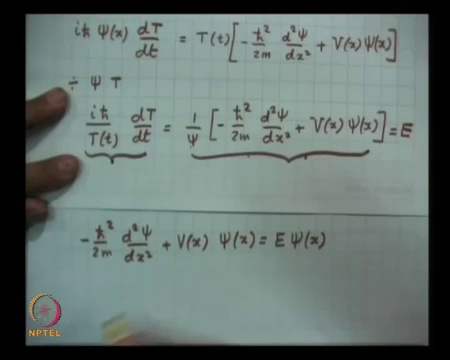 iħ Ψ(x) dT/dt = T(t) [ - ħ²/2m d²Ψ/dx² + V(x) Ψ(x) ]
÷ Ψ T
iħ/T(t) dT/dt = 1/Ψ [ - ħ²/2m d²Ψ/dx² + V(x) Ψ(x) ] = E
- ħ²/2m d²Ψ/dx² + V(x) Ψ(x) = E Ψ(x)
NPTEL